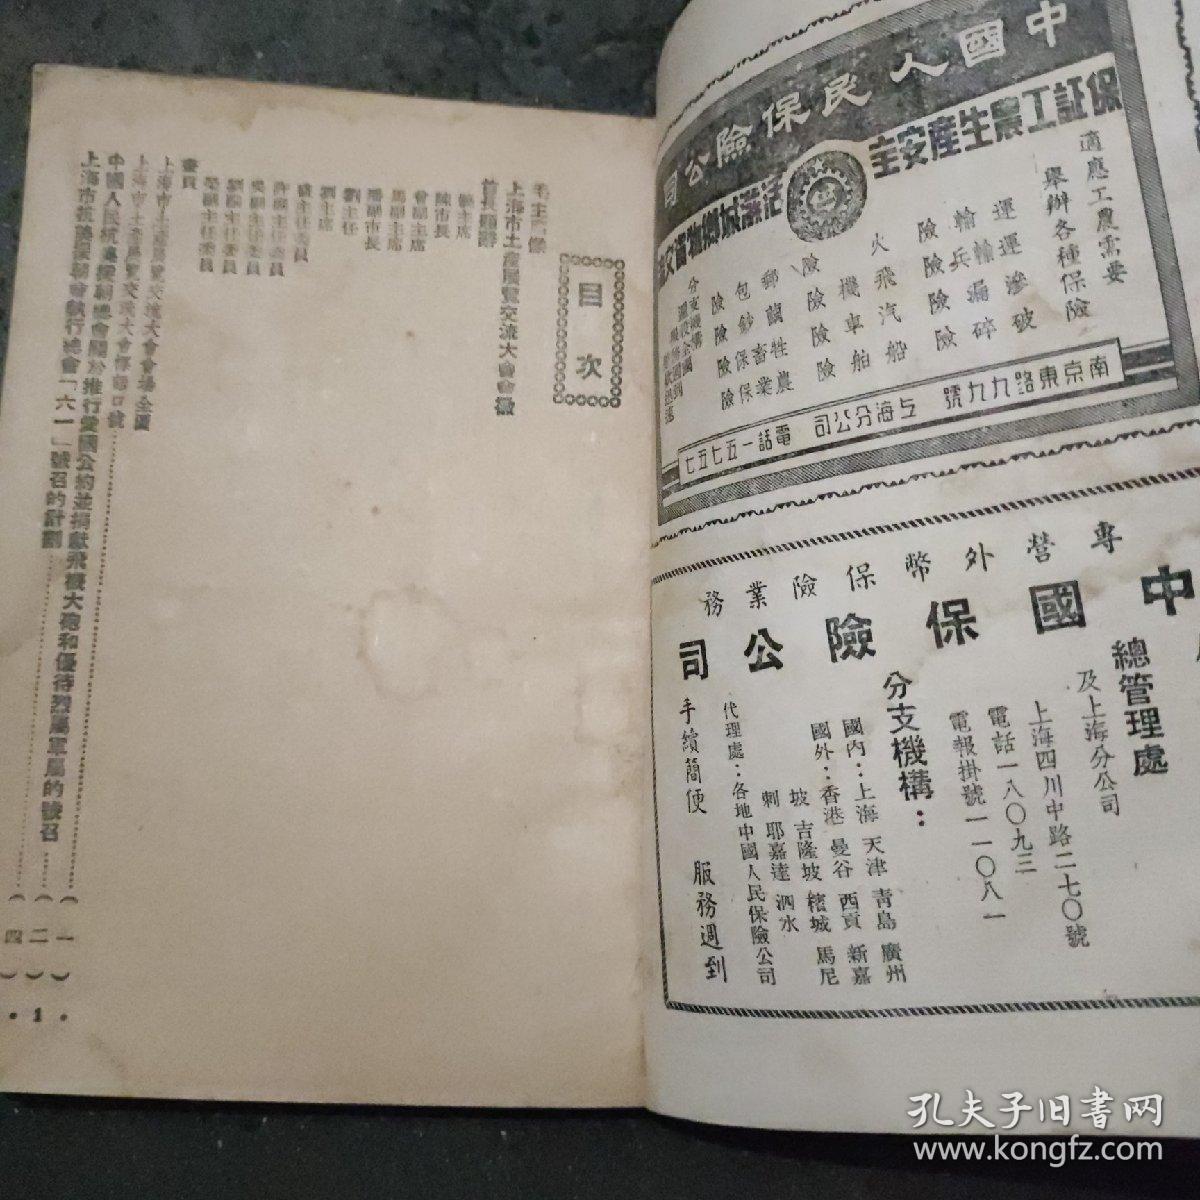 中國人民保險公司
保証工農生產安全
適應工農需要
舉辦各種保險
南京東路九九號 上海分公司 電話一五七五七
專營外幣保險業務
中國保險公司
總管理處
及上海分公司
上海四川中路二七〇號
電話一八〇九三
電報掛號一一〇八一
分支機構：
國內：上海 天津 青島 廣州
國外：香港 曼谷 西貢 新嘉
坡 吉隆坡 檳城 馬尼
剌 耶嘉達 泗水
代理處：各地中國人民保險公司
手續簡便 服務週到
目次
上海市土產展覽交流大會會徽
首長題辭
陳市長
曾副主席
馬副主席
潘副市長
劉主任
劉主席
許副主任委員
吳副主任委員
劉副主任委員
榮副主任委員
畫頁
上海市土產展覽交流大會會場全圖
上海市土產展覽交流大會標語口號（一）
中國人民抗美援朝總會關於推行愛國公約並捐獻飛機大砲和優待烈屬軍屬的號召（二）
上海市抗美援朝分會執行總會「六一」號召的計劃（四）
• 1 •
孔夫子旧书网
www.kongfz.com